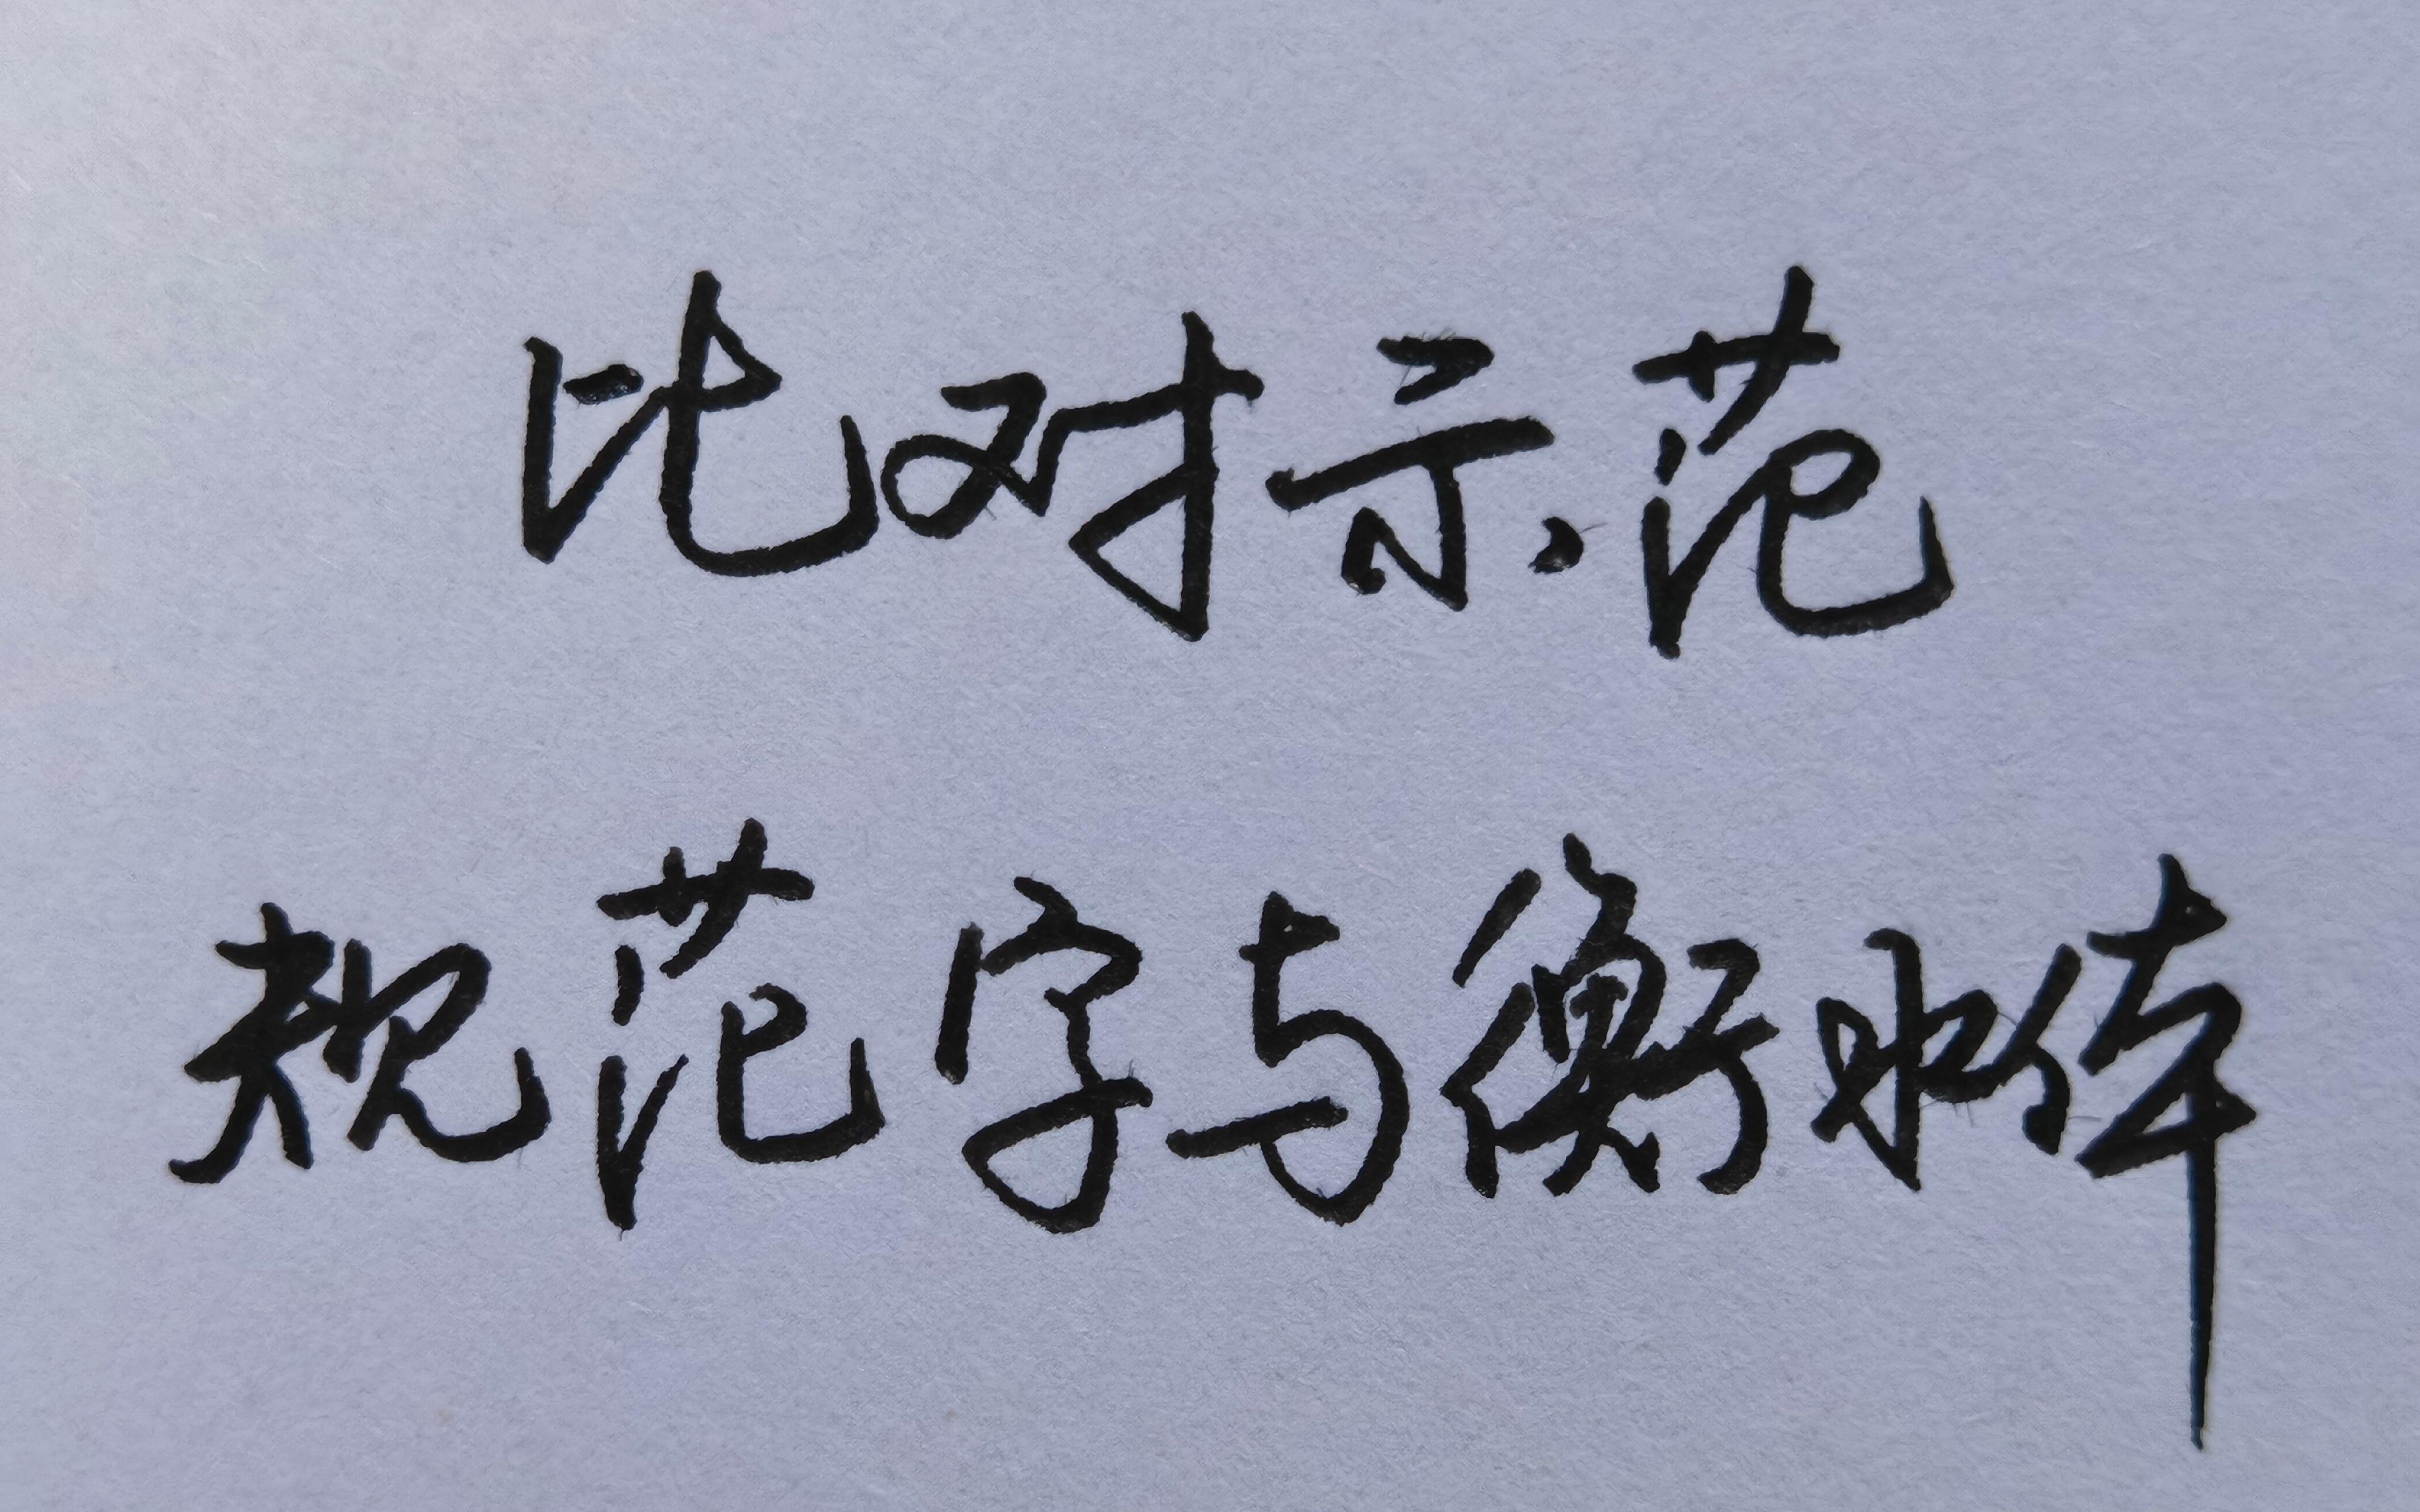 比对示范
规范字与衡水体